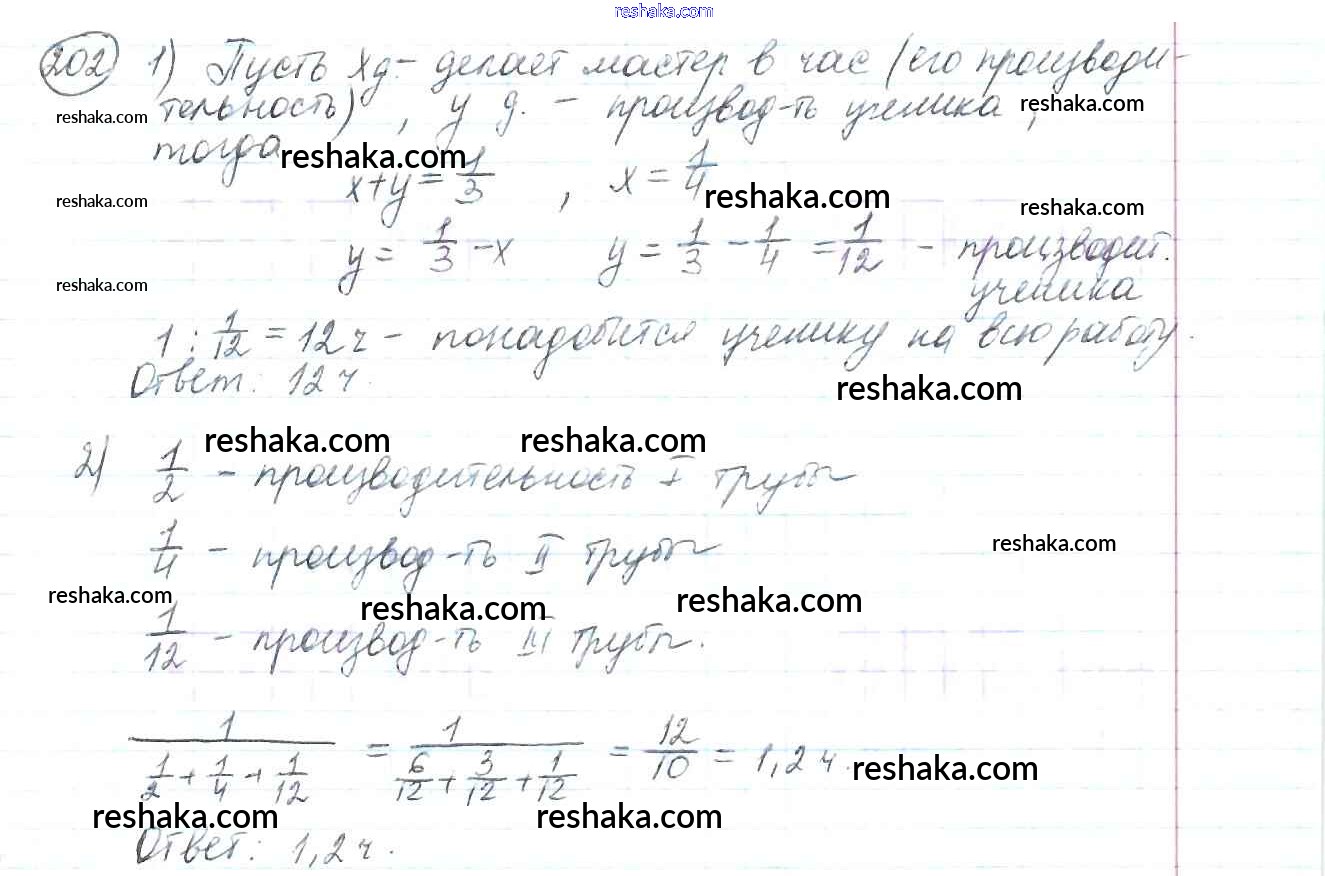 reshaka.com
202 1) Пусть x д. – делает мастер в час (его производи-
reshaka.com тельность), y д. – производ-ть ученика, reshaka.com
тогда reshaka.com
x+y = 1/3 , x = 1/4 reshaka.com
reshaka.com reshaka.com
y = 1/3 - x y = 1/3 - 1/4 = 1/12 – производит.
reshaka.com ученика
1 : 1/12 = 12 ч – понадобится ученику на всю работу.
Ответ: 12 ч. reshaka.com
reshaka.com reshaka.com
2) 1/2 – производительность I трубы
1/4 – производ-ть II трубы reshaka.com
reshaka.com reshaka.com reshaka.com
1/12 – производ-ть III трубы.
1/(1/2 + 1/4 + 1/12) = 1/(6/12 + 3/12 + 1/12) = 12/10 = 1,2 ч. reshaka.com
reshaka.com reshaka.com
Ответ: 1,2 ч.